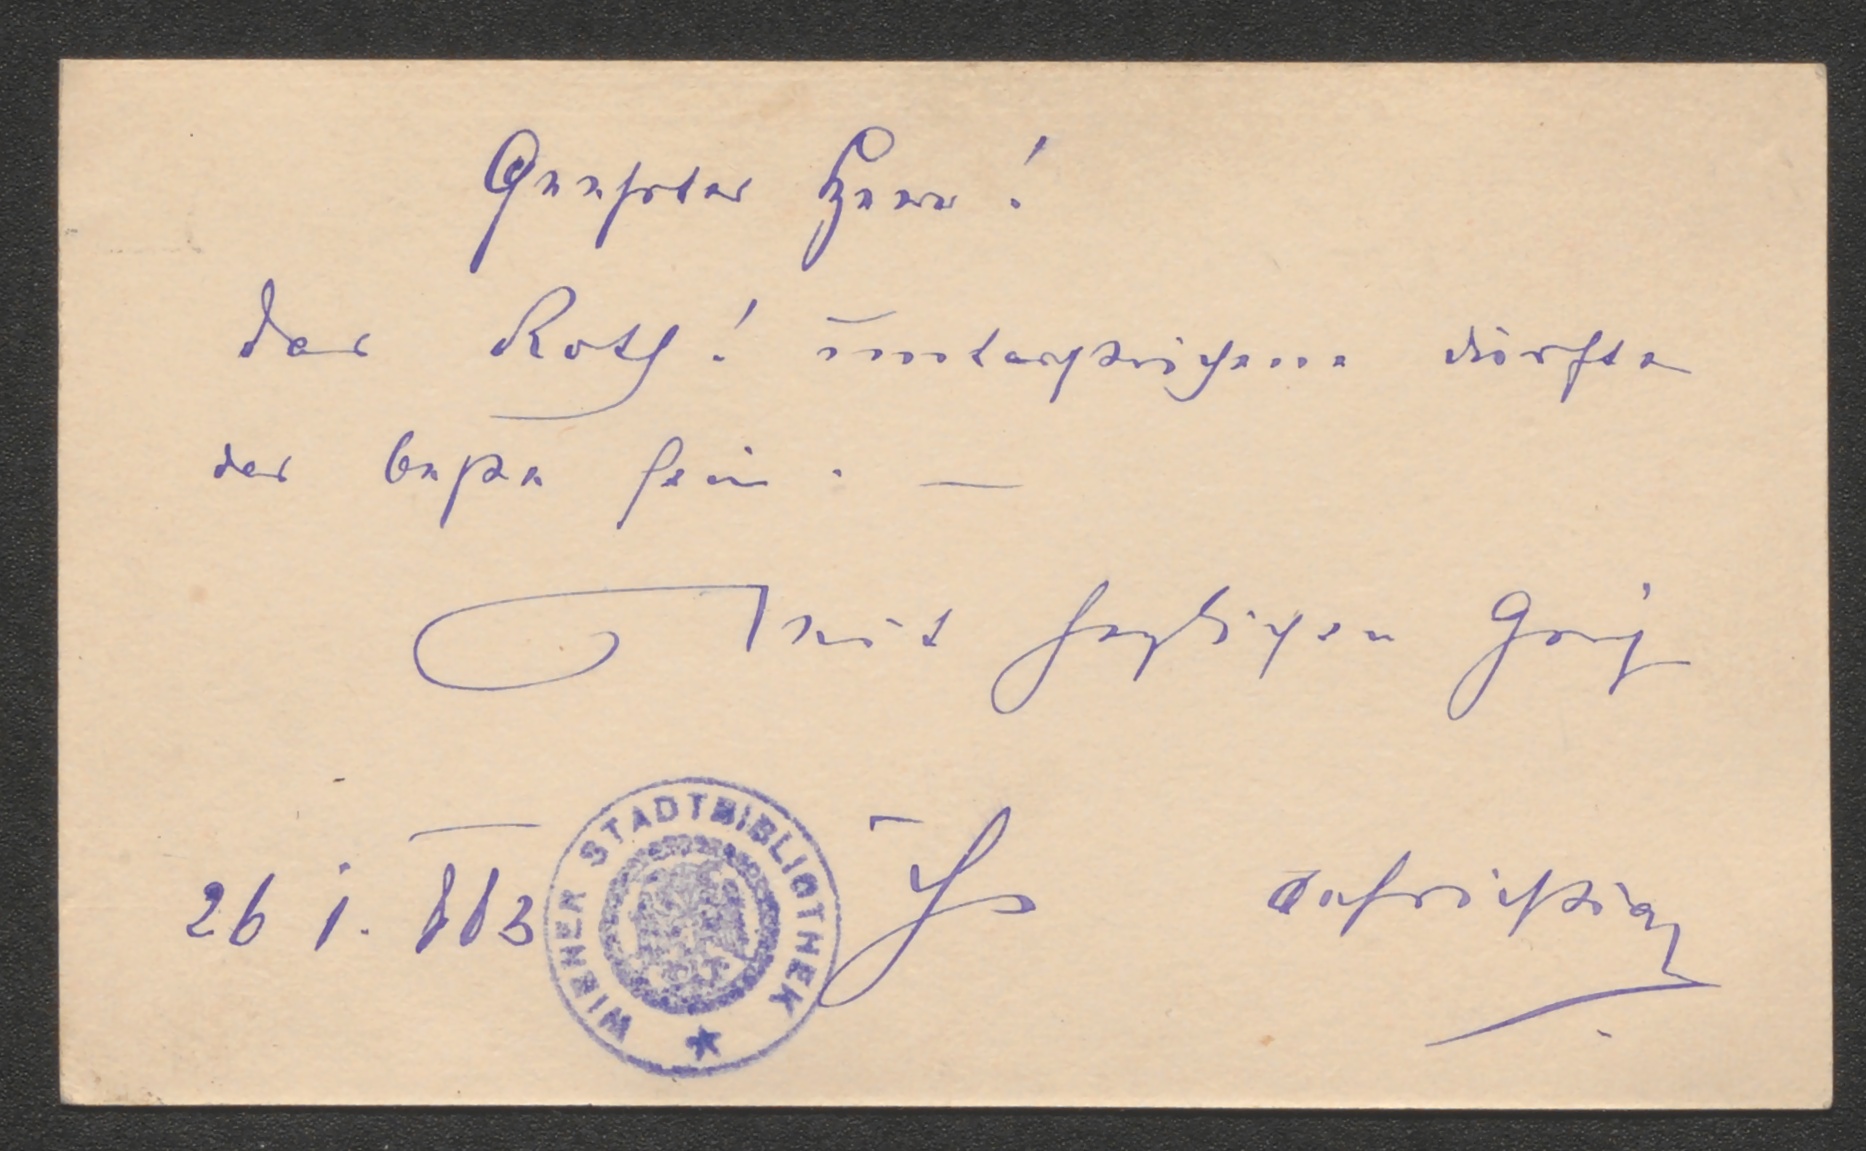 Geehrter Herr!
Der Roth! unterstrichene dürfte
der beste sein. —
Mit herzlichen Gruß
26 1. 883
Ihr aufrichtig
WIENER STADTBIBLIOTHEK